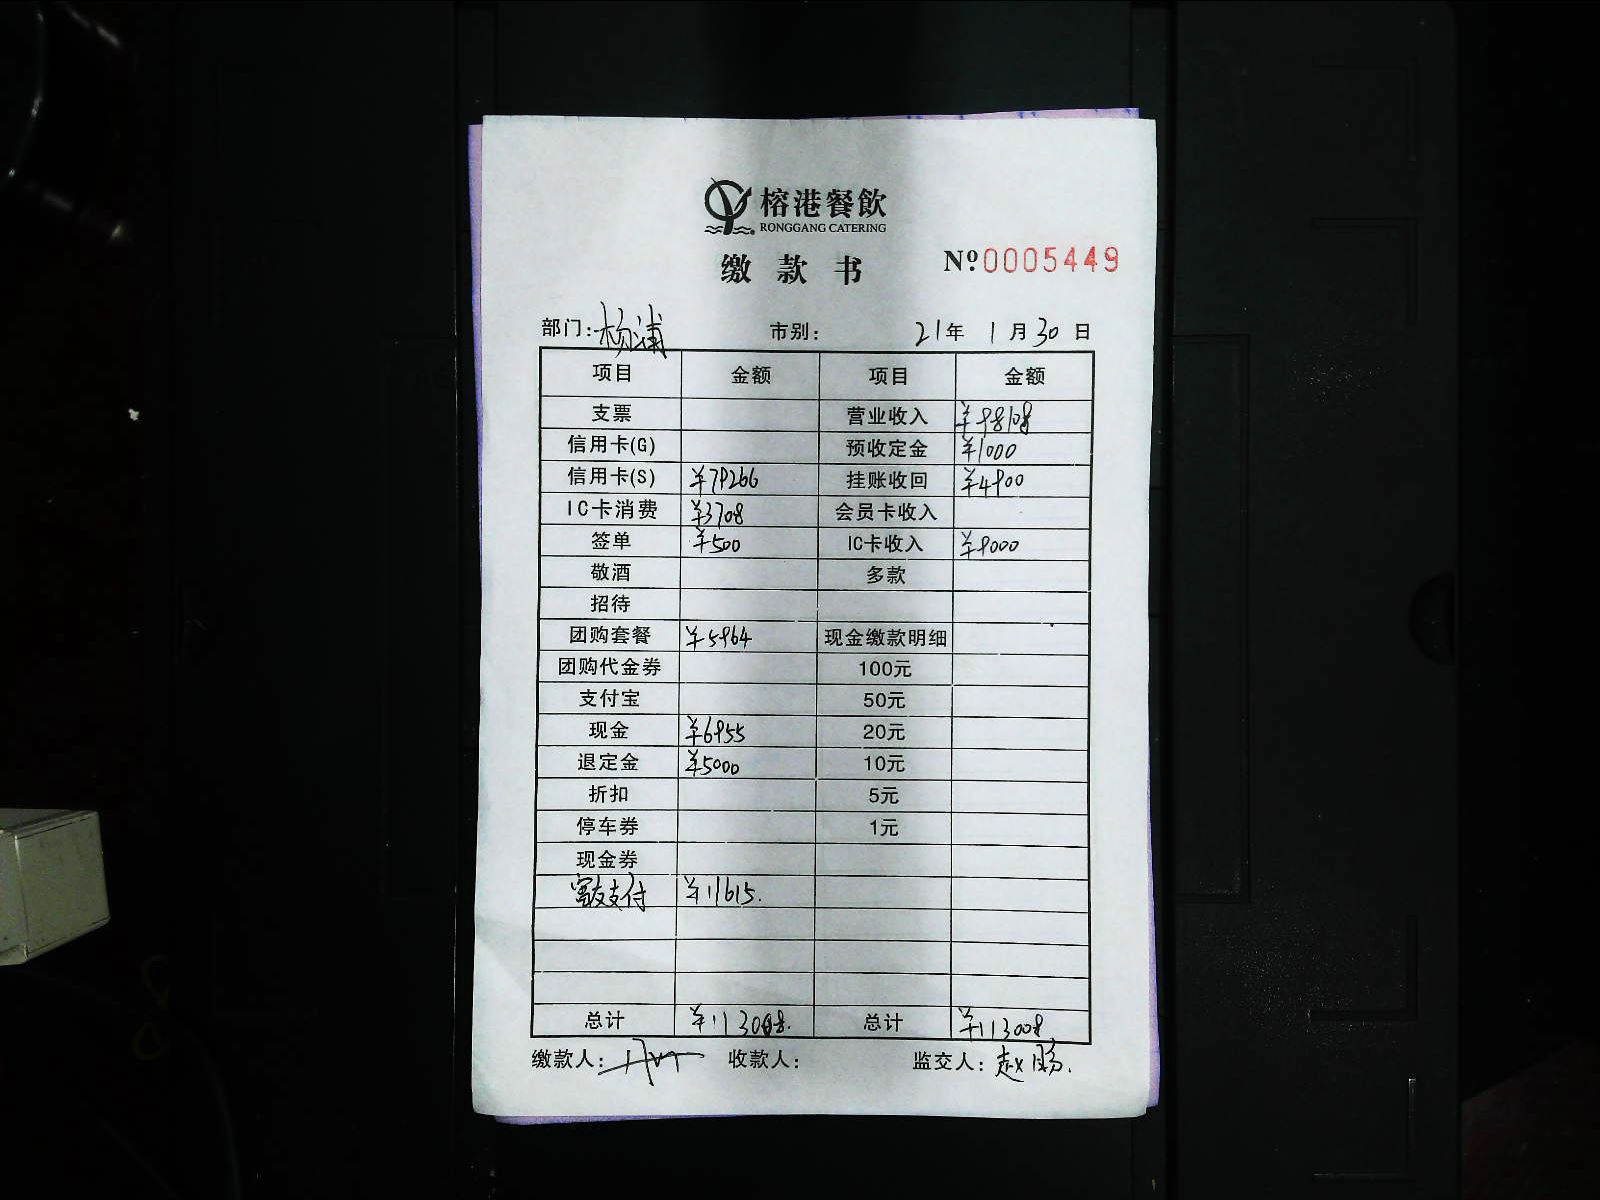 榕港餐飲
RONGGANG CATERING
缴款书 Nº0005449
部门:杨浦 市别: 21年 1月30日
项目 金额 项目 金额
支票 营业收入 ¥98108
信用卡(G) 预收定金 ¥1000
信用卡(S) ¥79266 挂账收回 ¥4900
IC卡消费 ¥3708 会员卡收入
签单 ¥500 IC卡收入 ¥9000
敬酒 多款
招待
团购套餐 ¥5964 现金缴款明细
团购代金券 100元
支付宝 50元
现金 ¥6955 20元
退定金 ¥5000 10元
折扣 5元
停车券 1元
现金券
富友支付 ¥11615.
总计 ¥113008. 总计 ¥113008
缴款人: 收款人: 监交人:赵